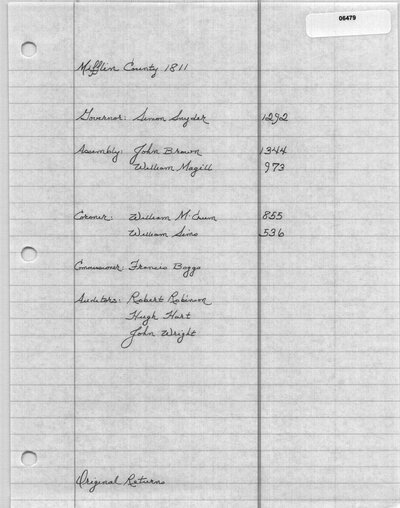 06479
Mifflin County 1811
Governor: Simon Snyder 1292
Assembly: John Brown 1344
William Magill 973
Coroner: William McCown 855
William Sims 536
Commissioner: Francis Boggs
Auditors: Robert Robinson
Hugh Hart
John Wright
Original Returns